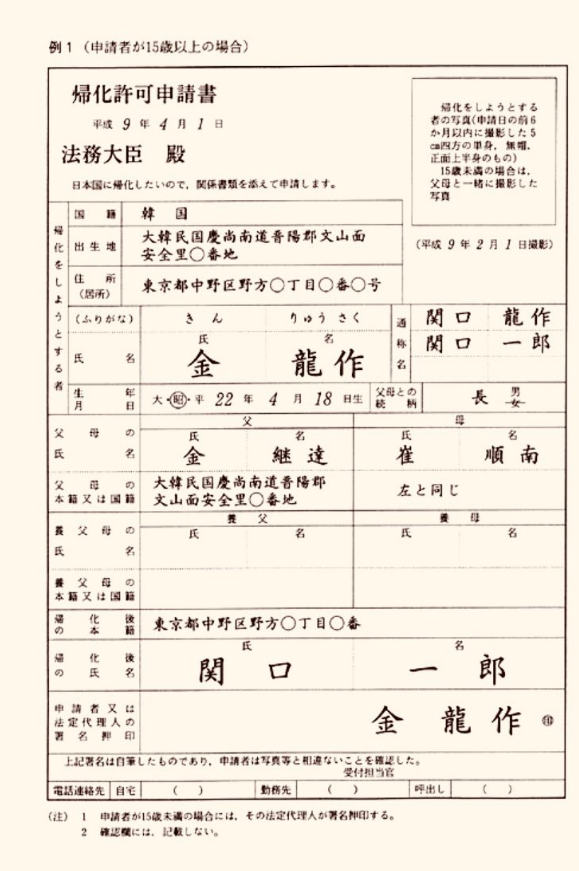 例1（申請者が15歳以上の場合）
帰化許可申請書
平成 9 年 4 月 1 日
法務大臣 殿
日本国に帰化したいので，関係書類を添えて申請します。
帰化をしようとする
者の写真(申請日の前6
か月以内に撮影した5
cm四方の単身，無帽，
正面上半身のもの)
15歳未満の場合は，
父母と一緒に撮影した
写真
(平成 9 年 2 月 1 日撮影)
帰化をしようとする者
国籍 韓国
出生地 大韓民国慶尚南道晋陽郡文山面
安全里〇番地
住所
(居所) 東京都中野区野方〇丁目〇番〇号
(ふりがな) きん りゅうさく
氏名 氏 名
金 龍作
通称名 関口 龍作
関口 一郎
生年月日 大・昭・平 22 年 4 月 18 日生
父母との続柄 長 男
女
父 母
父母の氏名 氏 名 氏 名
金 継達 崔 順南
父母の本籍又は国籍 大韓民国慶尚南道晋陽郡
文山面安全里〇番地
左と同じ
養父 養母
養父母の氏名 氏 名 氏 名
養父母の本籍又は国籍
帰化後の本籍 東京都中野区野方〇丁目〇番
帰化後の氏名 氏 名
関口 一郎
申請者又は
法定代理人の
署名押印
金龍作 ㊞
上記署名は自筆したものであり，申請者は写真等と相違ないことを確認した。
受付担当官
電話連絡先 自宅 ( ) 勤務先 ( ) 呼出し ( )
(注) 1 申請者が15歳未満の場合には，その法定代理人が署名押印する。
2 確認欄には，記載しない。